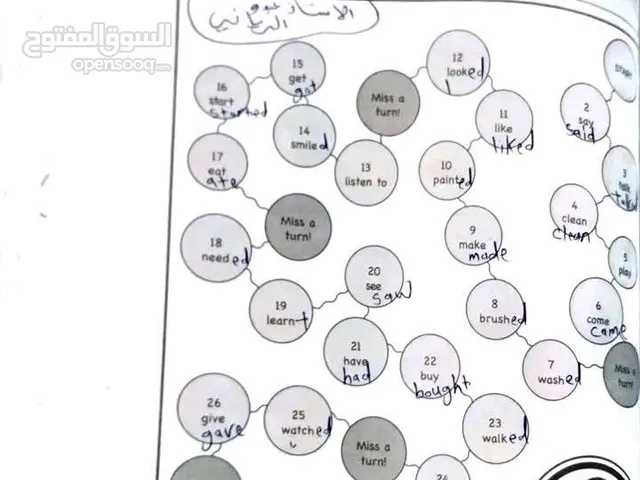 السوق المفتوح
opensooq.com
الاستاذ
15
get
got
16
start
started
14
smiled
Miss a
turn!
12
looked
11
like
liked
2
say
said
3
talk
4
clean
clean
5
play
17
eat
ate
13
listen to
10
painted
Miss a
turn!
18
needed
9
make
made
20
see
saw
19
learnt
8
brushed
6
come
came
21
have
had
22
buy
bought
7
washed
Miss a
turn!
26
give
gave
25
watched
Miss a
turn!
23
walked
24